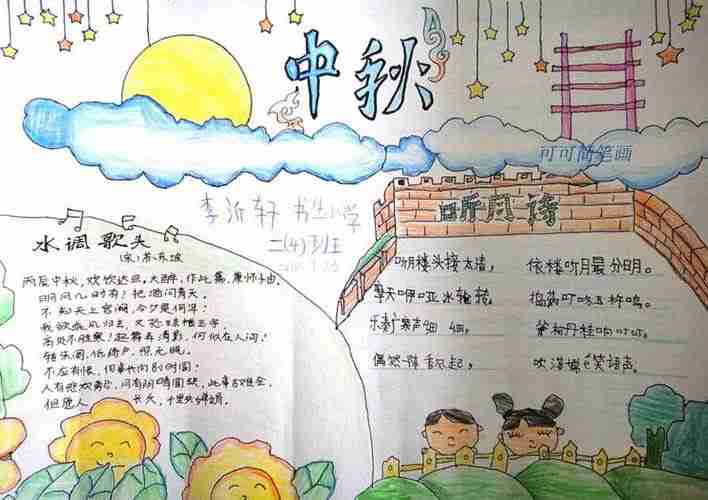 中秋
可可简笔画
李沂轩 书生小学
二(4)班
听月诗
水调歌头
(宋)苏东坡
丙辰中秋,欢饮达旦,大醉,作此篇,兼怀子由。
明月几时有?把酒问青天。
不知天上宫阙,今夕是何年?
我欲乘风归去,又恐琼楼玉宇,
高处不胜寒!起舞弄清影,何似在人间!
转朱阁,低绮户,照无眠。
不应有恨,何事长向别时圆?
人有悲欢离合,月有阴晴圆缺,此事古难全。
但愿人 长久,千里共婵娟。
听楼头接太清, 依楼听月最分明。
摩天咿哑冰轮转, 捣药叮咚玉杵鸣。
乐奏广寒声细细, 斧柯丹桂响叮叮。
偶然一阵香风起, 吹落嫦娥笑语声。